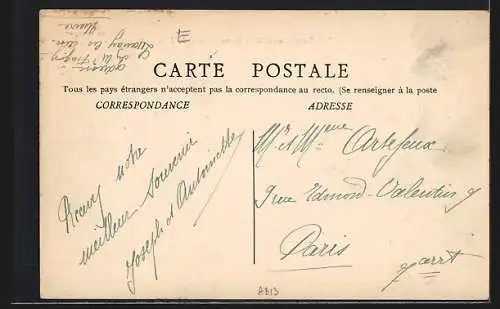 E
CARTE POSTALE
Tous les pays étrangers n'acceptent pas la correspondance au recto. (Se renseigner à la poste
CORRESPONDANCE
ADRESSE
Recevez notre
meilleur Souvenir
Joseph et Antoinette
Mr et Mme
9 rue Edmond-Valentin
Paris
7 arrt
AB13